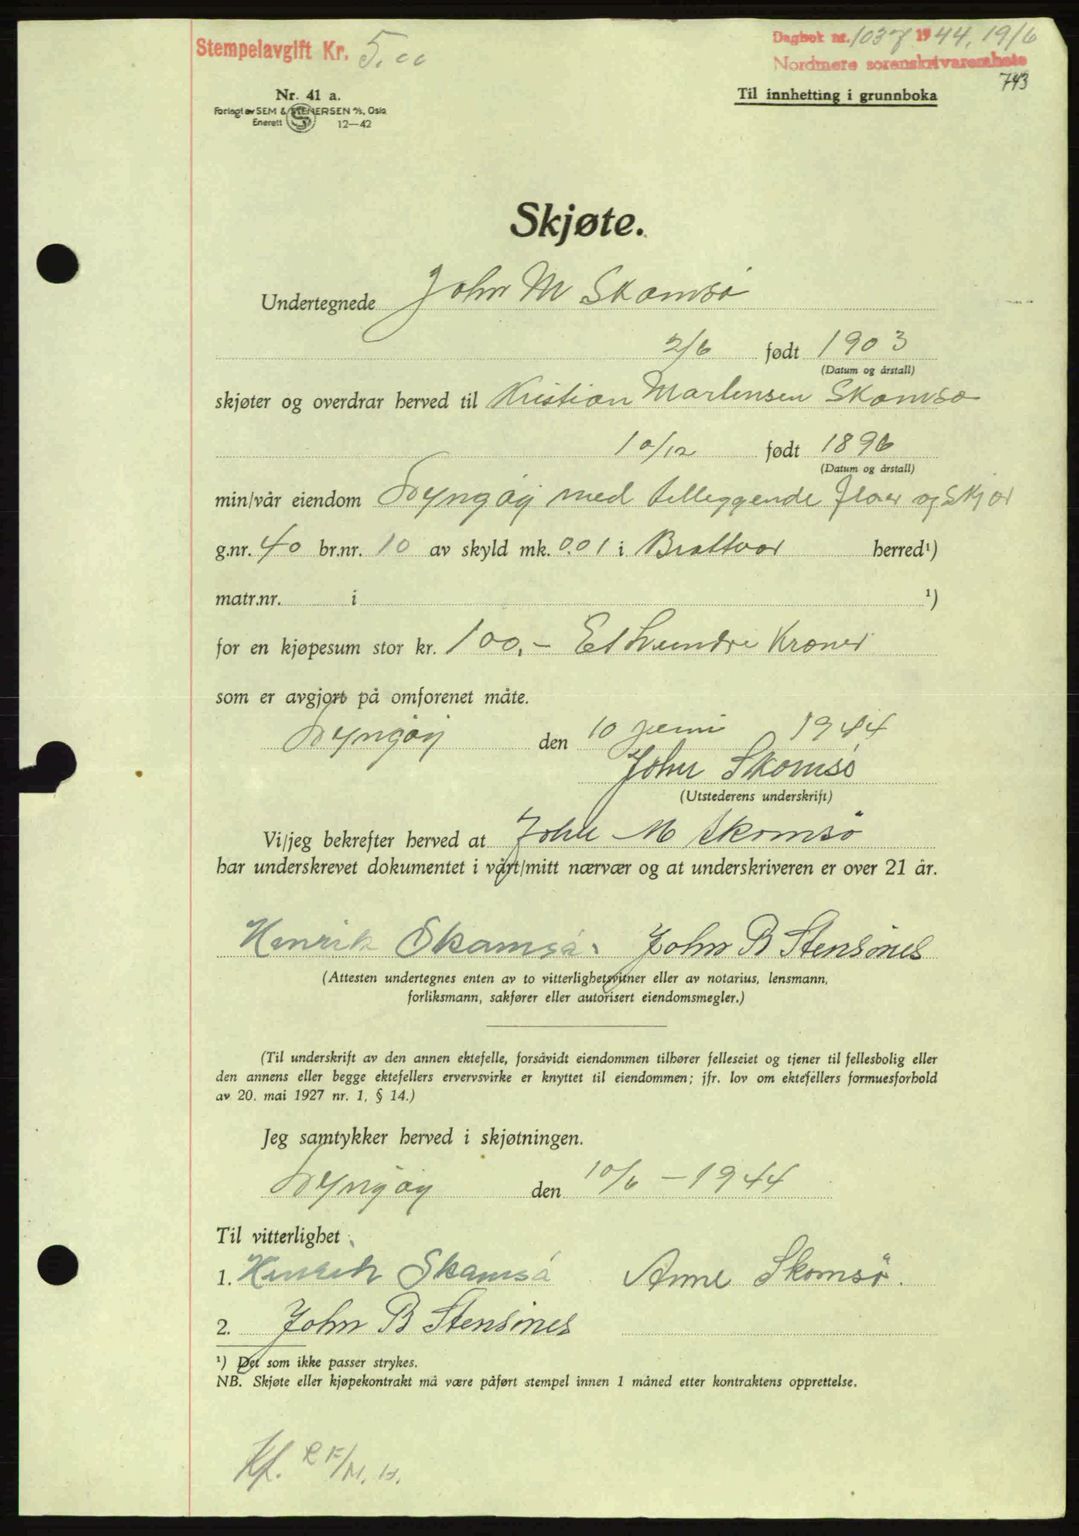 Stempelavgift Kr. 5.00
Dagbok nr. 1037 1944, 19/6
Nordmøre sorenskrivarembete
743
Nr. 41 a.
Forlagt av SEM & STENERSEN A/S, Oslo
Enerett 12—42
Til innhetting i grunnboka
Skjøte.
Undertegnede John M Skomsø
2/6 født 1903
(Datum og årstall)
skjøter og overdrar herved til Kristian Martensen Skomsø
10/12 født 1896
(Datum og årstall)
min/vår eiendom Lyngøy med tilleggende floer og Skjær
g.nr. 40 br.nr. 10 av skyld mk. 0.01 i Brattvær herred¹)
matr.nr. i ¹)
for en kjøpesum stor kr. 100,- Ethundre Kroner
som er avgjort på omforenet måte.
Lyngøy den 10 juni 1944
John Skomsø
(Utstederens underskrift)
Vi/jeg bekrefter herved at John M Skomsø
har underskrevet dokumentet i vårt/mitt nærvær og at underskriveren er over 21 år.
Henrik Skamsø. John B Stensønes
(Attesten undertegnes enten av to vitterlighetsvitner eller av notarius, lensmann,
forliksmann, sakfører eller autorisert eiendomsmegler.)
(Til underskrift av den annen ektefelle, forsåvidt eiendommen tilhører felleseiet og tjener til fellesbolig eller
den annens eller begge ektefellers ervervsvirke er knyttet til eiendommen; jfr. lov om ektefellers formuesforhold
av 20. mai 1927 nr. 1, § 14.)
Jeg samtykker herved i skjøtningen.
Lyngøy den 10/6 - 1944
Til vitterlighet
1. Henrik Skamsø Anne Skomsø.
2. John B Stensønes
¹) Det som ikke passer strykes.
NB. Skjøte eller kjøpekontrakt må være påført stempel innen 1 måned etter kontraktens opprettelse.
Kf.